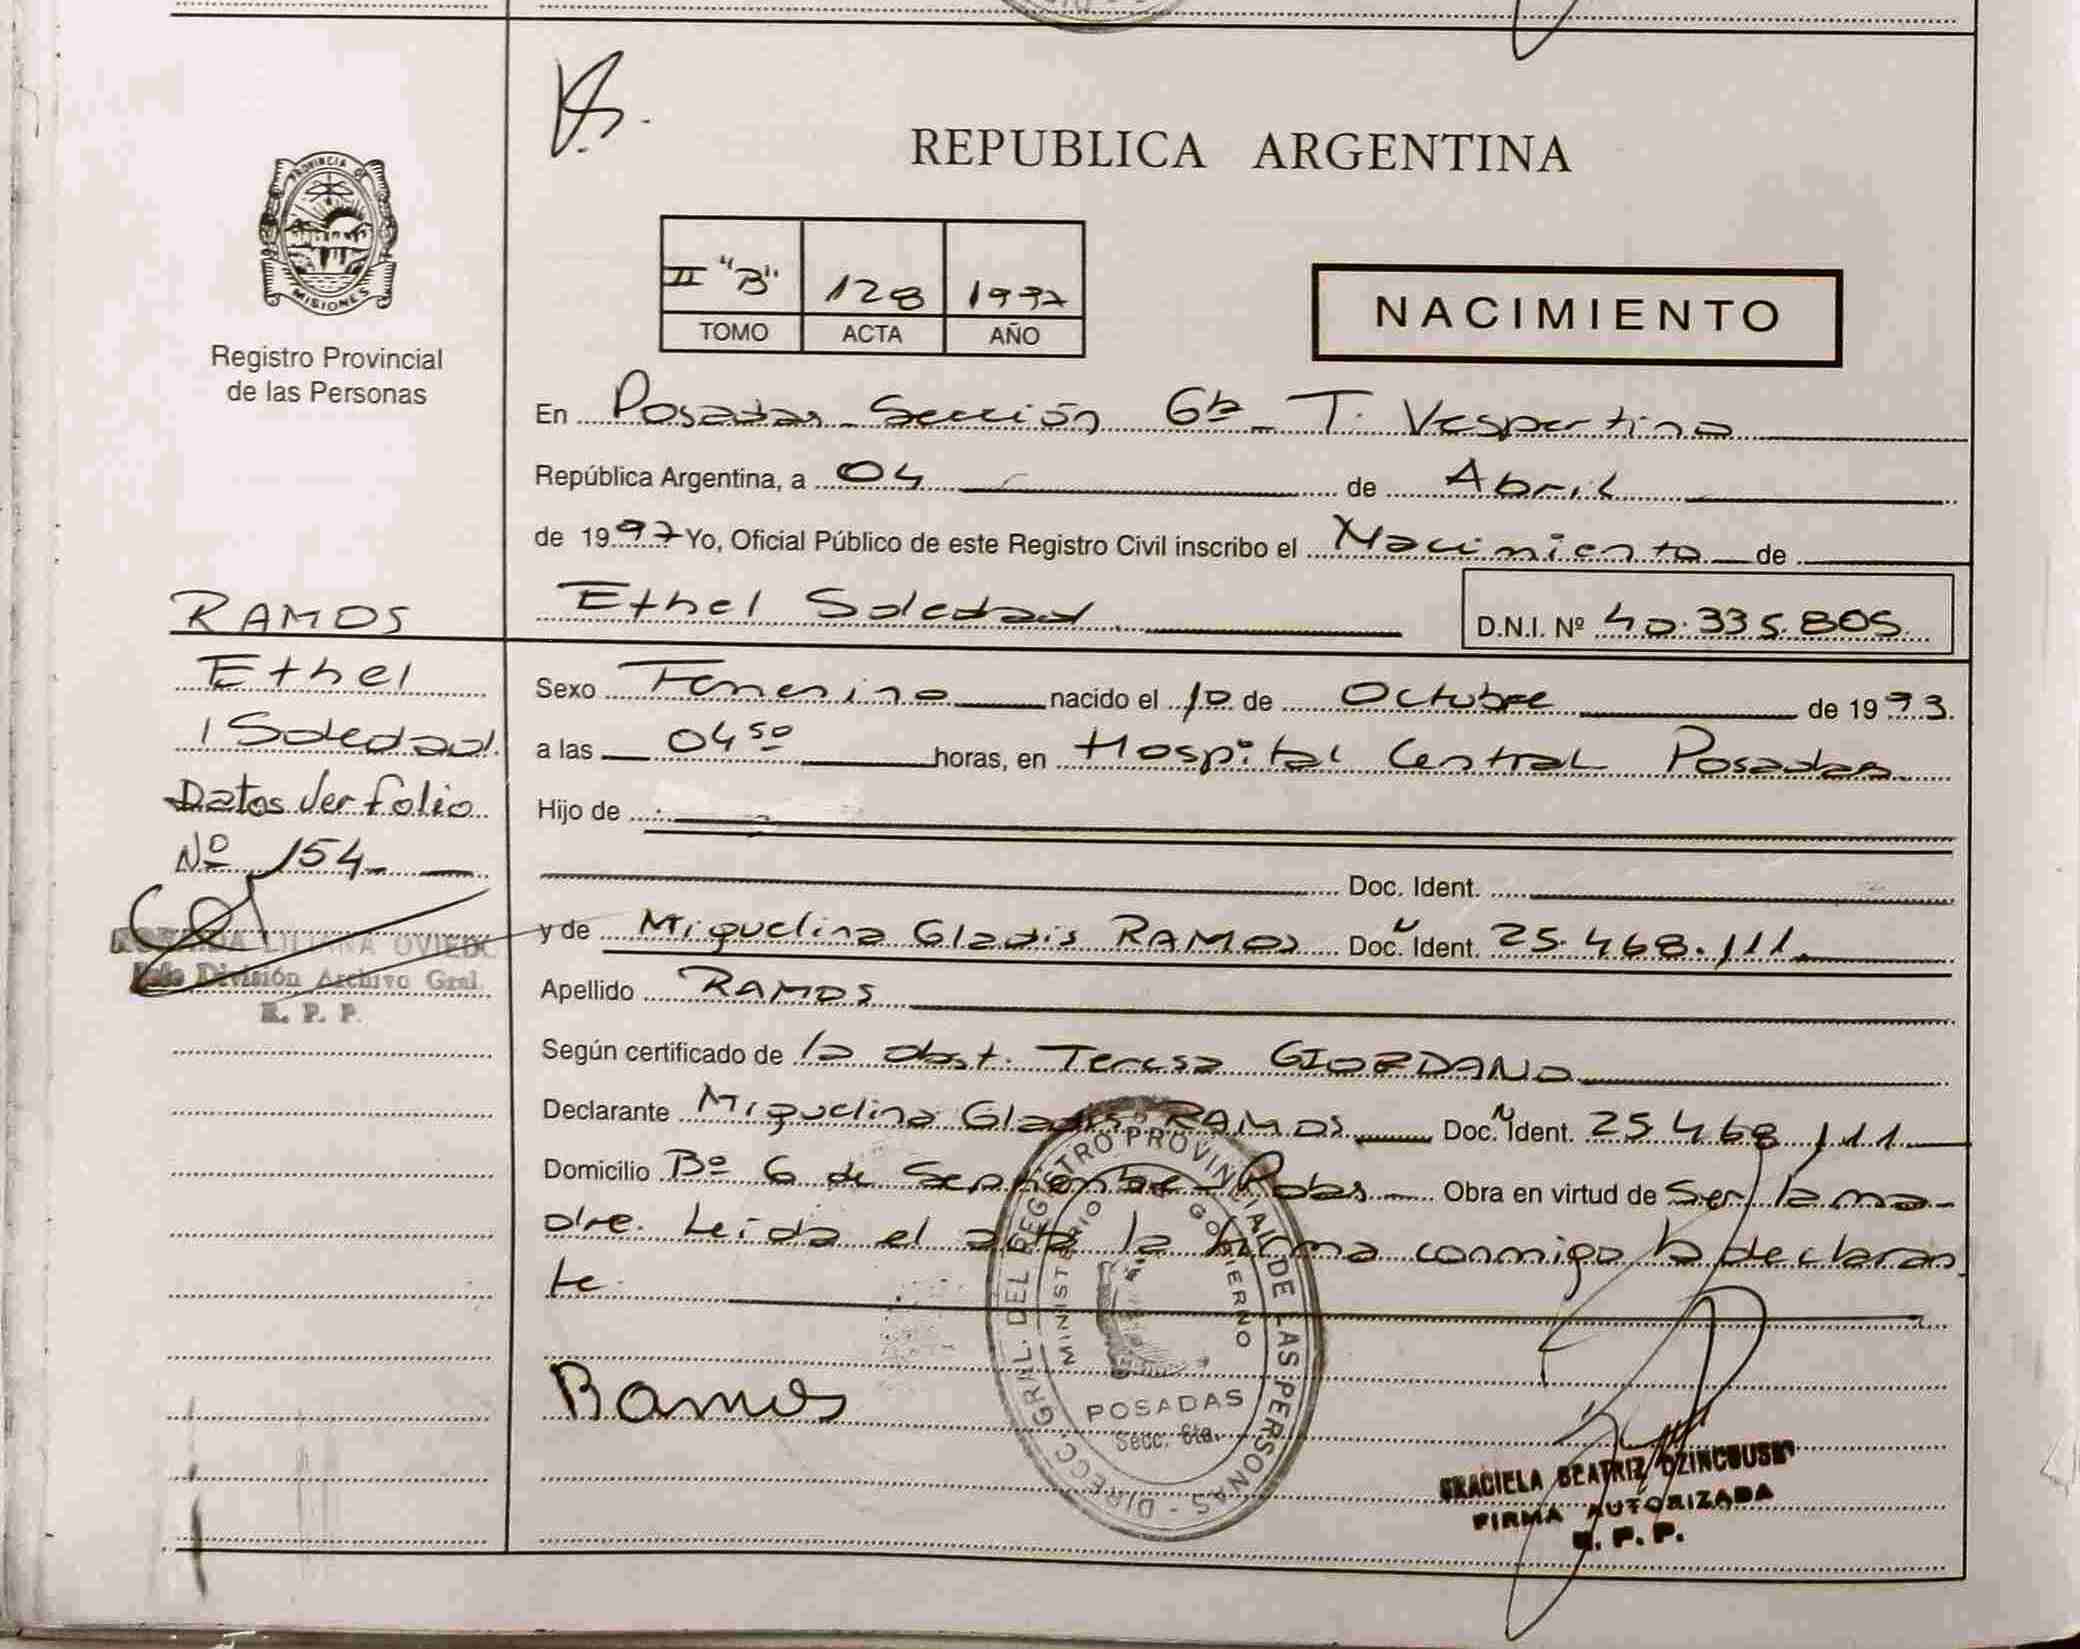 REPUBLICA ARGENTINA
PROVINCIA DE
MISIONES
Registro Provincial
de las Personas
II "B" 128 1997
TOMO ACTA AÑO
NACIMIENTO
En Posadas - Sección 6ta - T. Vespertino
República Argentina, a 04 de Abril
de 1997 Yo, Oficial Público de este Registro Civil inscribo el Nacimiento de
Ethel Soledad D.N.I. Nº 40.335.805.
RAMOS
Ethel
Soledad
Datos Ver folio
Nº 154
LILIANA OVIEDO
Jefe División Archivo Gral.
R. P. P.
Sexo Femenino nacido el 10 de Octubre de 1993.
a las 04 50 horas, en Hospital Central Posadas
Hijo de
Doc. Ident.
y de Miguelina Gladis RAMOS Doc. Ident. 25.468.111.
Apellido RAMOS
Según certificado de la obst. Teresa GIORDANO
Declarante Miguelina Gladis RAMOS Doc. Ident. 25 468 111
Domicilio Bº 6 de Septiembre - Pdas Obra en virtud de Ser la ma-
dre. Leída el acta la firma conmigo la declaran
te.
Ramos
DIRECC. GRAL. DEL REGISTRO PROVINCIAL DE LAS PERSONAS
MINISTERIO GOBIERNO
POSADAS
Secc. 6ta.
GRACIELA BEATRIZ
FIRMA AUTORIZADA
R. P. P.